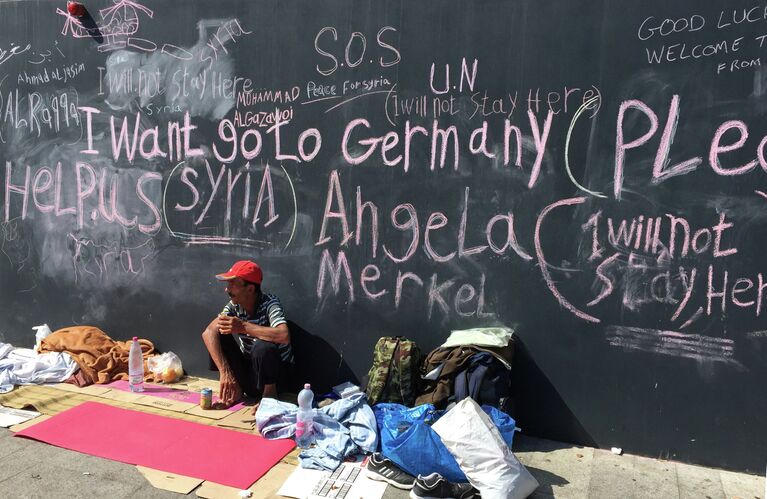 GOOD LUC
WELCOME T
FROM
S.O.S
Peace For Syria
U.N
I will not Stay Here
Ahmad al Jasim
ALRaqqa
I will not Stay Here
Syria
MOHAMMAD
ALGazawoi
I Want go to Germany (Plea
Help.us (SYRIA)
Angela
Merkel
(I will not
Stay Here